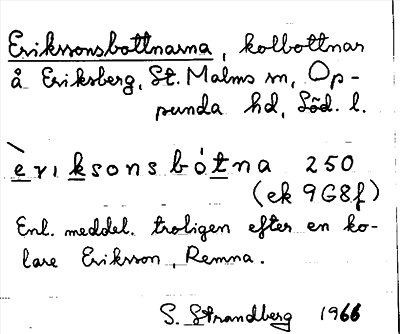 Erikssonsbottnarna, kolbottnar
å Eriksberg, St. Malms sn, Op-
punda hd, Söd. l.
èriksonsbótna 250
(ek 9G8f)
Enl. meddel. troligen efter en ko-
lare Eriksson, Remna.
S. Strandberg 1966